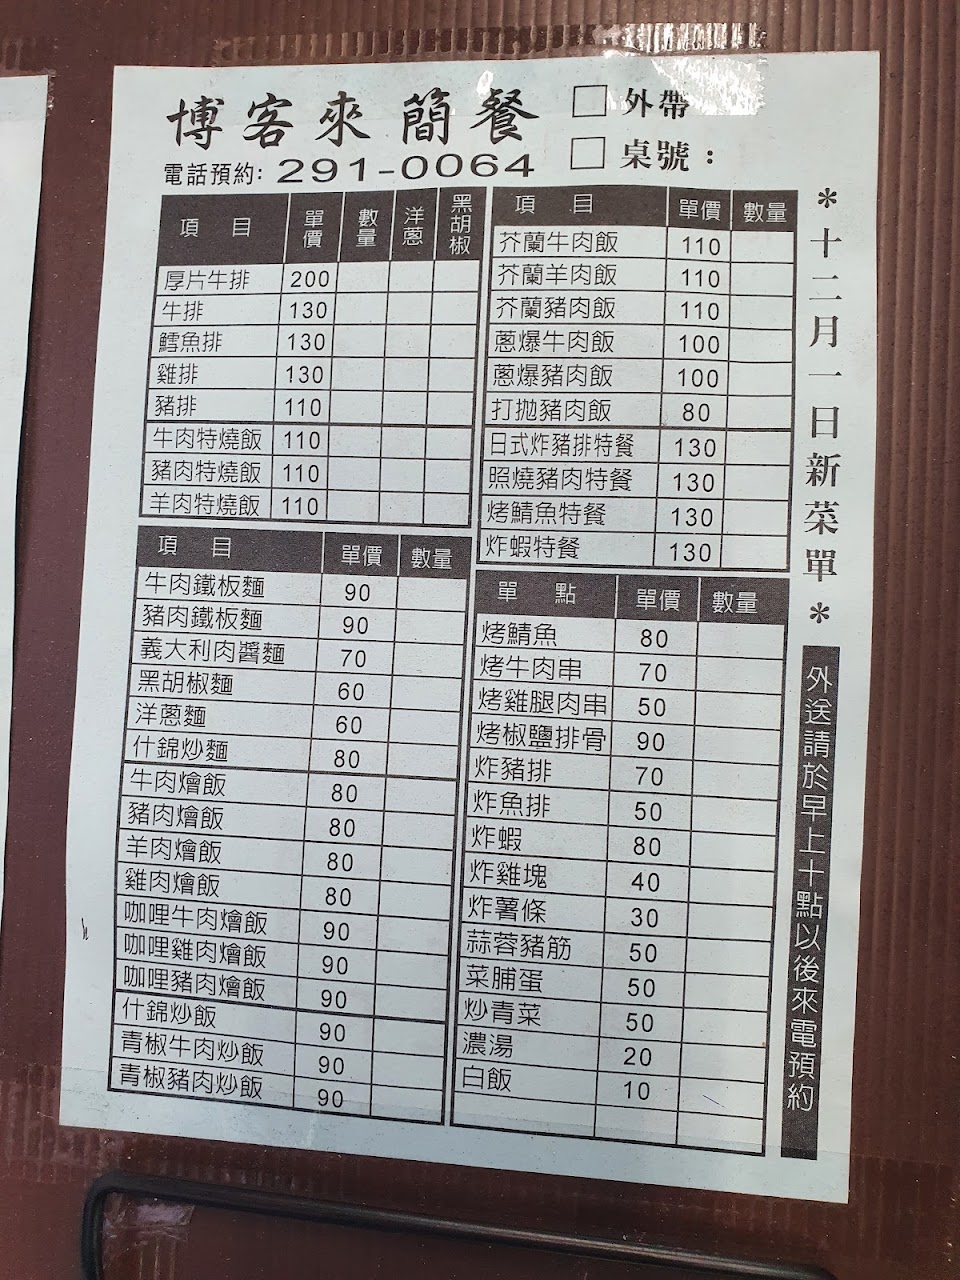 博客來簡餐
電話預約: 291-0064
□ 外帶
□ 桌號：
項目 單價 數量 洋蔥 黑胡椒
厚片牛排 200
牛排 130
鱈魚排 130
雞排 130
豬排 110
牛肉特燒飯 110
豬肉特燒飯 110
羊肉特燒飯 110
項目 單價 數量
牛肉鐵板麵 90
豬肉鐵板麵 90
義大利肉醬麵 70
黑胡椒麵 60
洋蔥麵 60
什錦炒麵 80
牛肉燴飯 80
豬肉燴飯 80
羊肉燴飯 80
雞肉燴飯 80
咖哩牛肉燴飯 90
咖哩雞肉燴飯 90
咖哩豬肉燴飯 90
什錦炒飯 90
青椒牛肉炒飯 90
青椒豬肉炒飯 90
項目 單價 數量
芥蘭牛肉飯 110
芥蘭羊肉飯 110
芥蘭豬肉飯 110
蔥爆牛肉飯 100
蔥爆豬肉飯 100
打拋豬肉飯 80
日式炸豬排特餐 130
照燒豬肉特餐 130
烤鯖魚特餐 130
炸蝦特餐 130
單點 單價 數量
烤鯖魚 80
烤牛肉串 70
烤雞腿肉串 50
烤椒鹽排骨 90
炸豬排 70
炸魚排 50
炸蝦 80
炸雞塊 40
炸薯條 30
蒜蓉豬筋 50
菜脯蛋 50
炒青菜 50
濃湯 20
白飯 10
＊十二月一日新菜單＊
外送請於早上十點以後來電預約